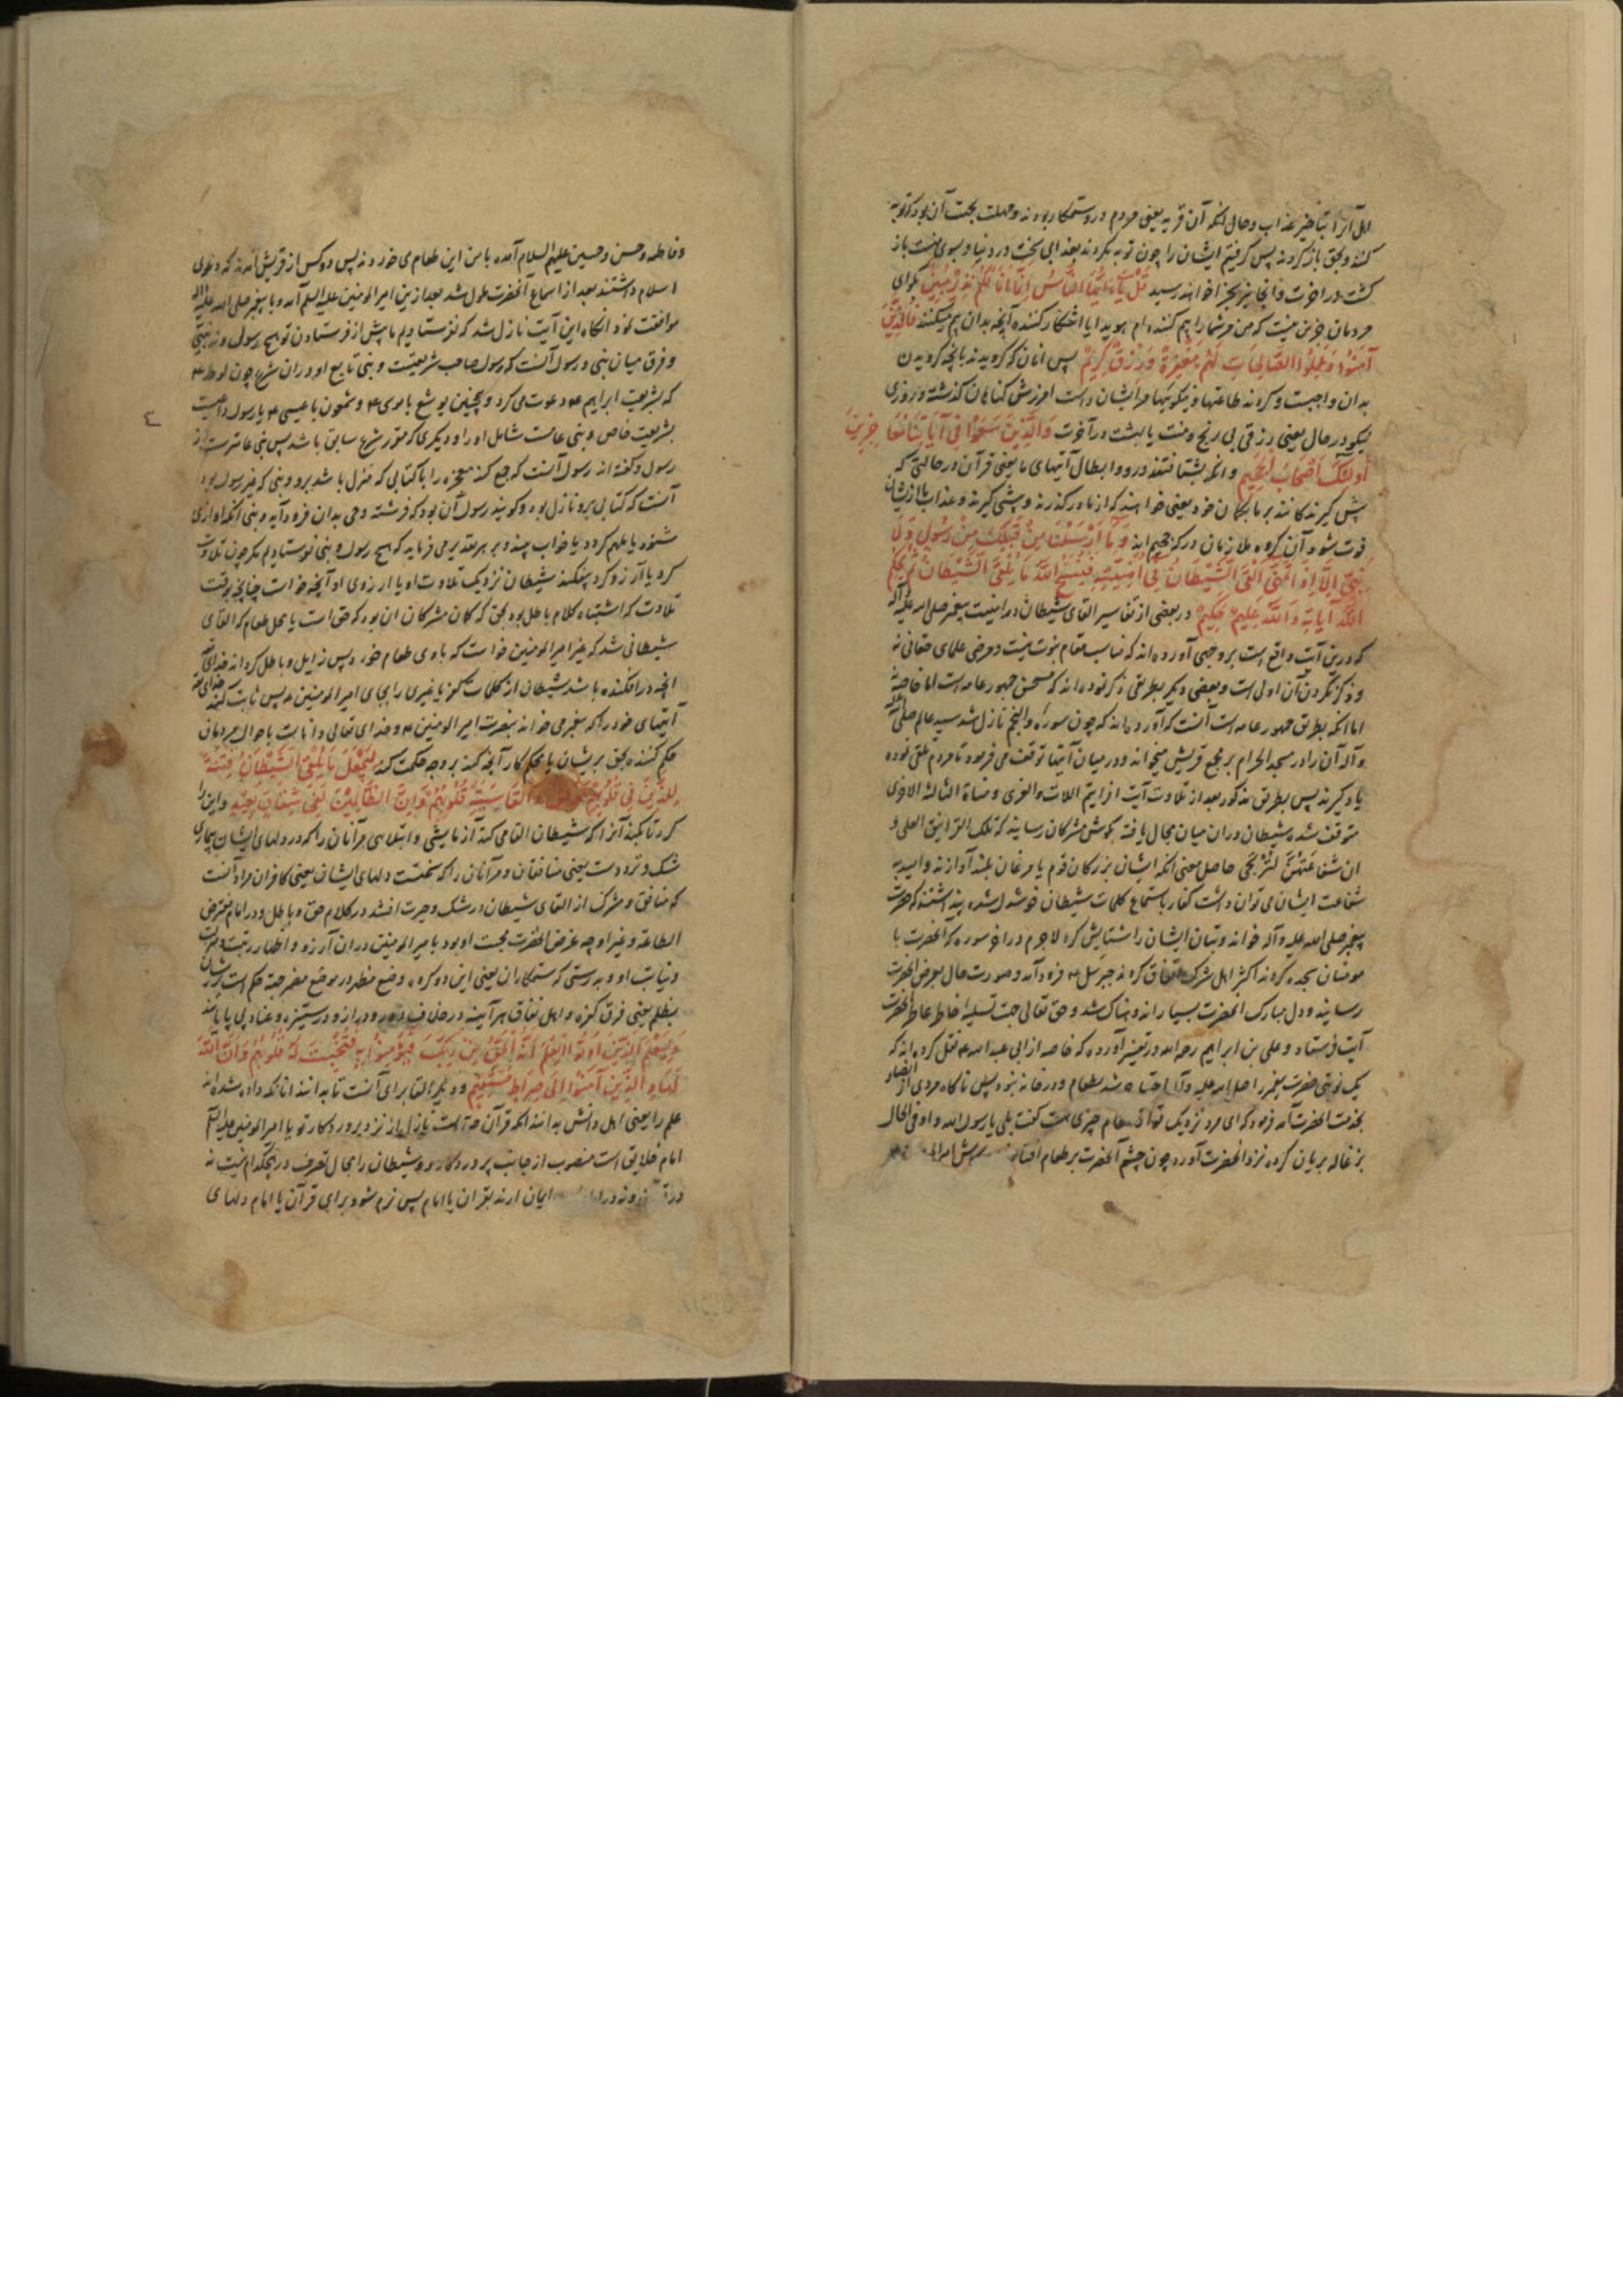 اهل آنرا بتاخیر عذاب و حال آنکه آن قریه یعنی مردم درو ستمکار بودند و مهلت بجهت آن بود که توبه
کنند و بحق باز کردند پس گرفتم ایشان را چون توبه نکردند بعذابی سخت در دنیا و بسوی منست باز
کشت در اخرت و آنجا نیز بجزا خواهند رسید قُلْ یَا اَیُّهَا النَّاسُ اِنَّمَا اَنَا لَکُمْ نَذِیرٌ مُبِینٌ بکو ای
مردمان جزین نیست که من مر شما را بیم کننده ام هویدا یا اشکار کننده آنچه بدان بیم میکنند فَالَّذِینَ
آمَنُوا وَعَمِلُوا الصَّالِحَاتِ لَهُمْ مَغْفِرَةٌ وَرِزْقٌ کَرِیمٌ پس انان که کرویدند بانچه کرویدن
بدان واجبست و کردند طاعتها و نیکوئیها مر ایشان راست امرزش کناهان کذشته و روزی
نیکو در حال یعنی رزقی بی رنج و منت یا بهشت در آخرت وَالَّذِینَ سَعَوْا فِی آیَاتِنَا مُعَاجِزِینَ
اُولَئِکَ اَصْحَابُ الْجَحِیمِ و انکه بشتافتند در رد و ابطال آیتهای ما یعنی قرآن در حالتی که
پیش کیرندکانند بر ما بکمان خود یعنی خواهند که از ما درکذرند و پیشی کیرند و عذاب ما از ایشان
فوت شود آن کروه ملازمان درکه جحیم اند وَمَا اَرْسَلْنَا مِنْ قَبْلِکَ مِنْ رَسُولٍ وَلَا
نَبِیٍّ اِلَّا اِذَا تَمَنَّی اَلْقَی الشَّیْطَانُ فِی اُمْنِیَّتِهِ فَیَنْسَخُ اللَّهُ مَا یُلْقِی الشَّیْطَانُ ثُمَّ یُحْکِمُ
اللَّهُ آیَاتِهِ وَاللَّهُ عَلِیمٌ حَکِیمٌ در بعضی از تفاسیر القای شیطان در امنیت پیغمبر صلی الله علیه وآله
که درین آیت واقع است بر وجهی آورده اند که مناسب مقام نبوت نیست و مرضی علمای حقانی نه
و ذکر نکردن آن اولی است و بعضی دیکر بطریقی ذکر نموده اند که مستحسن جمهور عامه است اما خاصه نه
اما انکه بطریق جمهور عامه است آنست که آورده اند که چون سوره والنجم نازل شد سید عالم صلی الله علیه
و آله آن را در مسجد الحرام بر مجمع قریش میخواند و در میان آیتها توقف می فرمود تا مردم تلقی نموده
یاد کیرند پس بطریق مذکور بعد از تلاوت آیت افرایتم اللات والعزی ومناة الثالثة الاخری
متوقف شد و شیطان دران میان مجال یافته بکوش مشرکان رسانید که تلک الغرانیق العلی و
ان شفاعتهن لترتجی حاصل معنی آنکه ایشان بزرکان قوم یا مرغان بلند آوازند و امید به
شفاعت ایشان می توان داشت کفار باستماع کلمات شیطان خوشدل شده پنداشتند که حضرت
پیغمبر صلی الله علیه وآله خواند و بتان ایشان را ستایش کرد لاجرم در اخر سوره که آنحضرت با
مومنان سجده کردند اکثر اهل شرک اتفاق کردند جبرئیل ع فرود آمد و صورت حال بعرض آنحضرت
رسانید و دل مبارک آنحضرت بسیار اندوهناک شد و حق تعالی جهت تسلیه خاطر عاطر آنحضرت
آیت فرستاد و علی بن ابراهیم رحمه الله در تفسیر آورده که خاصه از ابی عبدالله ع نقل کرده اند که
یک نوبتی حضرت پیغمبر را صلی الله علیه وآله احتیاج شد بطعام و در خانه نبود پس ناکاه مردی از انصار
بخدمت آنحضرت آمد فرمود که ای مرد نزدیک تو از طعام چیزی هست کفت بلی یا رسول الله و او فی الحال
بزغاله بریان کرده نزد آنحضرت آورد چون چشم آنحضرت بر طعام افتاد
و فاطمه و حسن و حسین علیهم السلام آمده با من این طعام می خوردند پس دو کس از قریش آمدند که دعوی
اسلام داشتند بعد از استماع آنحضرت ملول شد بعد ازین امیر المومنین علیه السلام آمد و با پیغمبر صلی الله علیه وآله
موافقت نمود انکاه این آیت نازل شد که نفرستادیم ما پیش از فرستادن تو هیچ رسولی و نه نبیی
و فرق میان نبی و رسول آنست که رسول صاحب شریعتست و نبی تابع او دران شرع چون لوط ع
که بشریعت ابراهیم ع دعوت می کرد و همچنین یوشع با موسی ع و شمعون با عیسی ع یا رسول داعیست
بشریعت خاص و نبی عامست شامل او را و دیکری که مقرر شرع سابق باشد پس نبی عامترست از
رسول و کفته اند رسول آنست که جمع کند معجزه را با کتابی که منزل باشد برو و نبی که غیر رسول بود
آنست که کتابی برو نازل نبود و کویند رسول آن بود که فرشته وحی بدان فرود آید و نبی آنکه آوازی
شنود یا ملهم کردد یا خواب بیند و بر هر تقدیر می فرماید که هیچ رسول و نبی نفرستادیم مکر چون تلاوت
کرد یا آرزو کرد بیفکند شیطان نزدیک تلاوت او یا ارزوی او آنچه خواست چنانچه برفت
تلاوت که اشتباه کلام باطل بود بحق که کمان مشرکان ان بود که حق است یا محل طعام که القای
شیطانی شد که غیر امیر المومنین خواست که با وی طعام خورد پس زایل و باطل کرداند خدای
انچه در افکنده باشد شیطان از کلمات کفر یا غیری را بجای امیر المومنین ع پس ثابت کند خدای
آیتهای خود را که پیغمبر می خواند بنصرت امیر المومنین ع و خدای تعالی داناست باحوال مردمان
حکم کننده بحق بریشان یا محکم کار آنچه کند بر وجه حکمت کند لِیَجْعَلَ مَا یُلْقِی الشَّیْطَانُ فِتْنَةً
لِلَّذِینَ فِی قُلُوبِهِمْ مَرَضٌ وَالْقَاسِیَةِ قُلُوبُهُمْ وَاِنَّ الظَّالِمِینَ لَفِی شِقَاقٍ بَعِیدٍ و این را
کرد تا بکند آنرا که شیطان القا می کند آزمایشی و ابتلایی مر آنان را که در دلهای ایشان بیماری
شک و تردد ست یعنی منافقان و مر آنان را که سختست دلهای ایشان یعنی کافران مراد آنست
که منافق و مشرک از القای شیطان در شک و حیرت افتند در کلام حق و باطل و در امام مفترض
الطاعة و غیر او چه غرض آنحضرت محبت او بود با امیر المومنین دران آرزو و اظهار رتبت و
و نیابت او و بدرستی که ستمکاران یعنی این دو کروه وضع مظهر در موضع مضمر جهة حکم است بریشان
بظلم یعنی فرق کفره و اهل نفاق هر آینه در خلاف دور و دراز و در ستیزه و عناد بی پایانند
وَلِیَعْلَمَ الَّذِینَ اُوتُوا الْعِلْمَ اَنَّهُ الْحَقُّ مِنْ رَبِّکَ فَیُؤْمِنُوا بِهِ فَتُخْبِتَ لَهُ قُلُوبُهُمْ وَاِنَّ اللَّهَ
لَهَادِ الَّذِینَ آمَنُوا اِلَی صِرَاطٍ مُسْتَقِیمٍ و دیکر القا برای آنست تا بدانند انانکه داده شده اند
علم را یعنی اهل دانش بدانند انکه قرآن حق است نازل از نزد پروردکار تو یا امیر المومنین علیه السلم
امام خلایق است منصوب از جانب پروردکار و شیطان را مجال تصرف در هیچکدام نیست نه
ایمان ارند بقران یا امام پس نرم شود برای قرآن یا امام دلهای